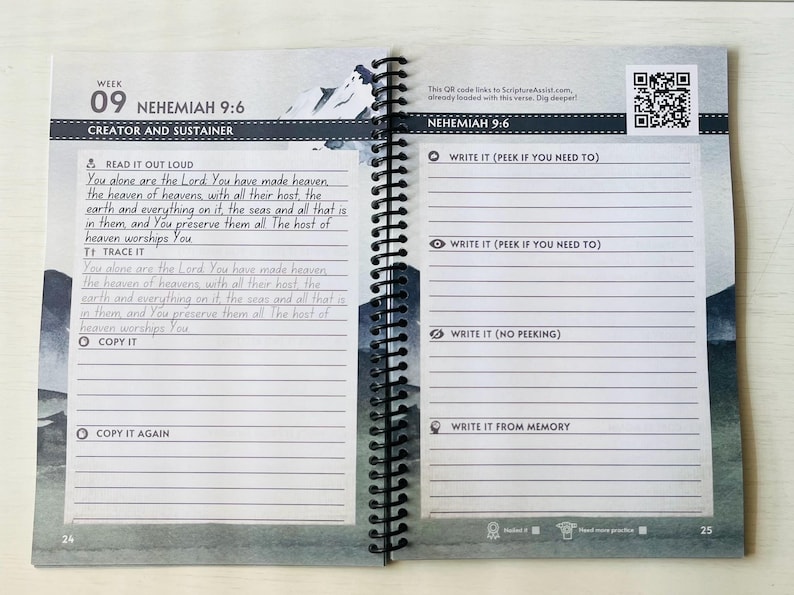 WEEK
09 NEHEMIAH 9:6
CREATOR AND SUSTAINER
READ IT OUT LOUD
You alone are the Lord; You have made heaven,
the heaven of heavens, with all their host, the
earth and everything on it, the seas and all that is
in them, and You preserve them all. The host of
heaven worships You.
Tt TRACE IT
You alone are the Lord; You have made heaven,
the heaven of heavens, with all their host, the
earth and everything on it, the seas and all that is
in them, and You preserve them all. The host of
heaven worships You.
COPY IT
COPY IT AGAIN
24
This QR code links to ScriptureAssist.com,
already loaded with this verse. Dig deeper!
NEHEMIAH 9:6
WRITE IT (PEEK IF YOU NEED TO)
WRITE IT (PEEK IF YOU NEED TO)
WRITE IT (NO PEEKING)
WRITE IT FROM MEMORY
Nailed it
Need more practice
25